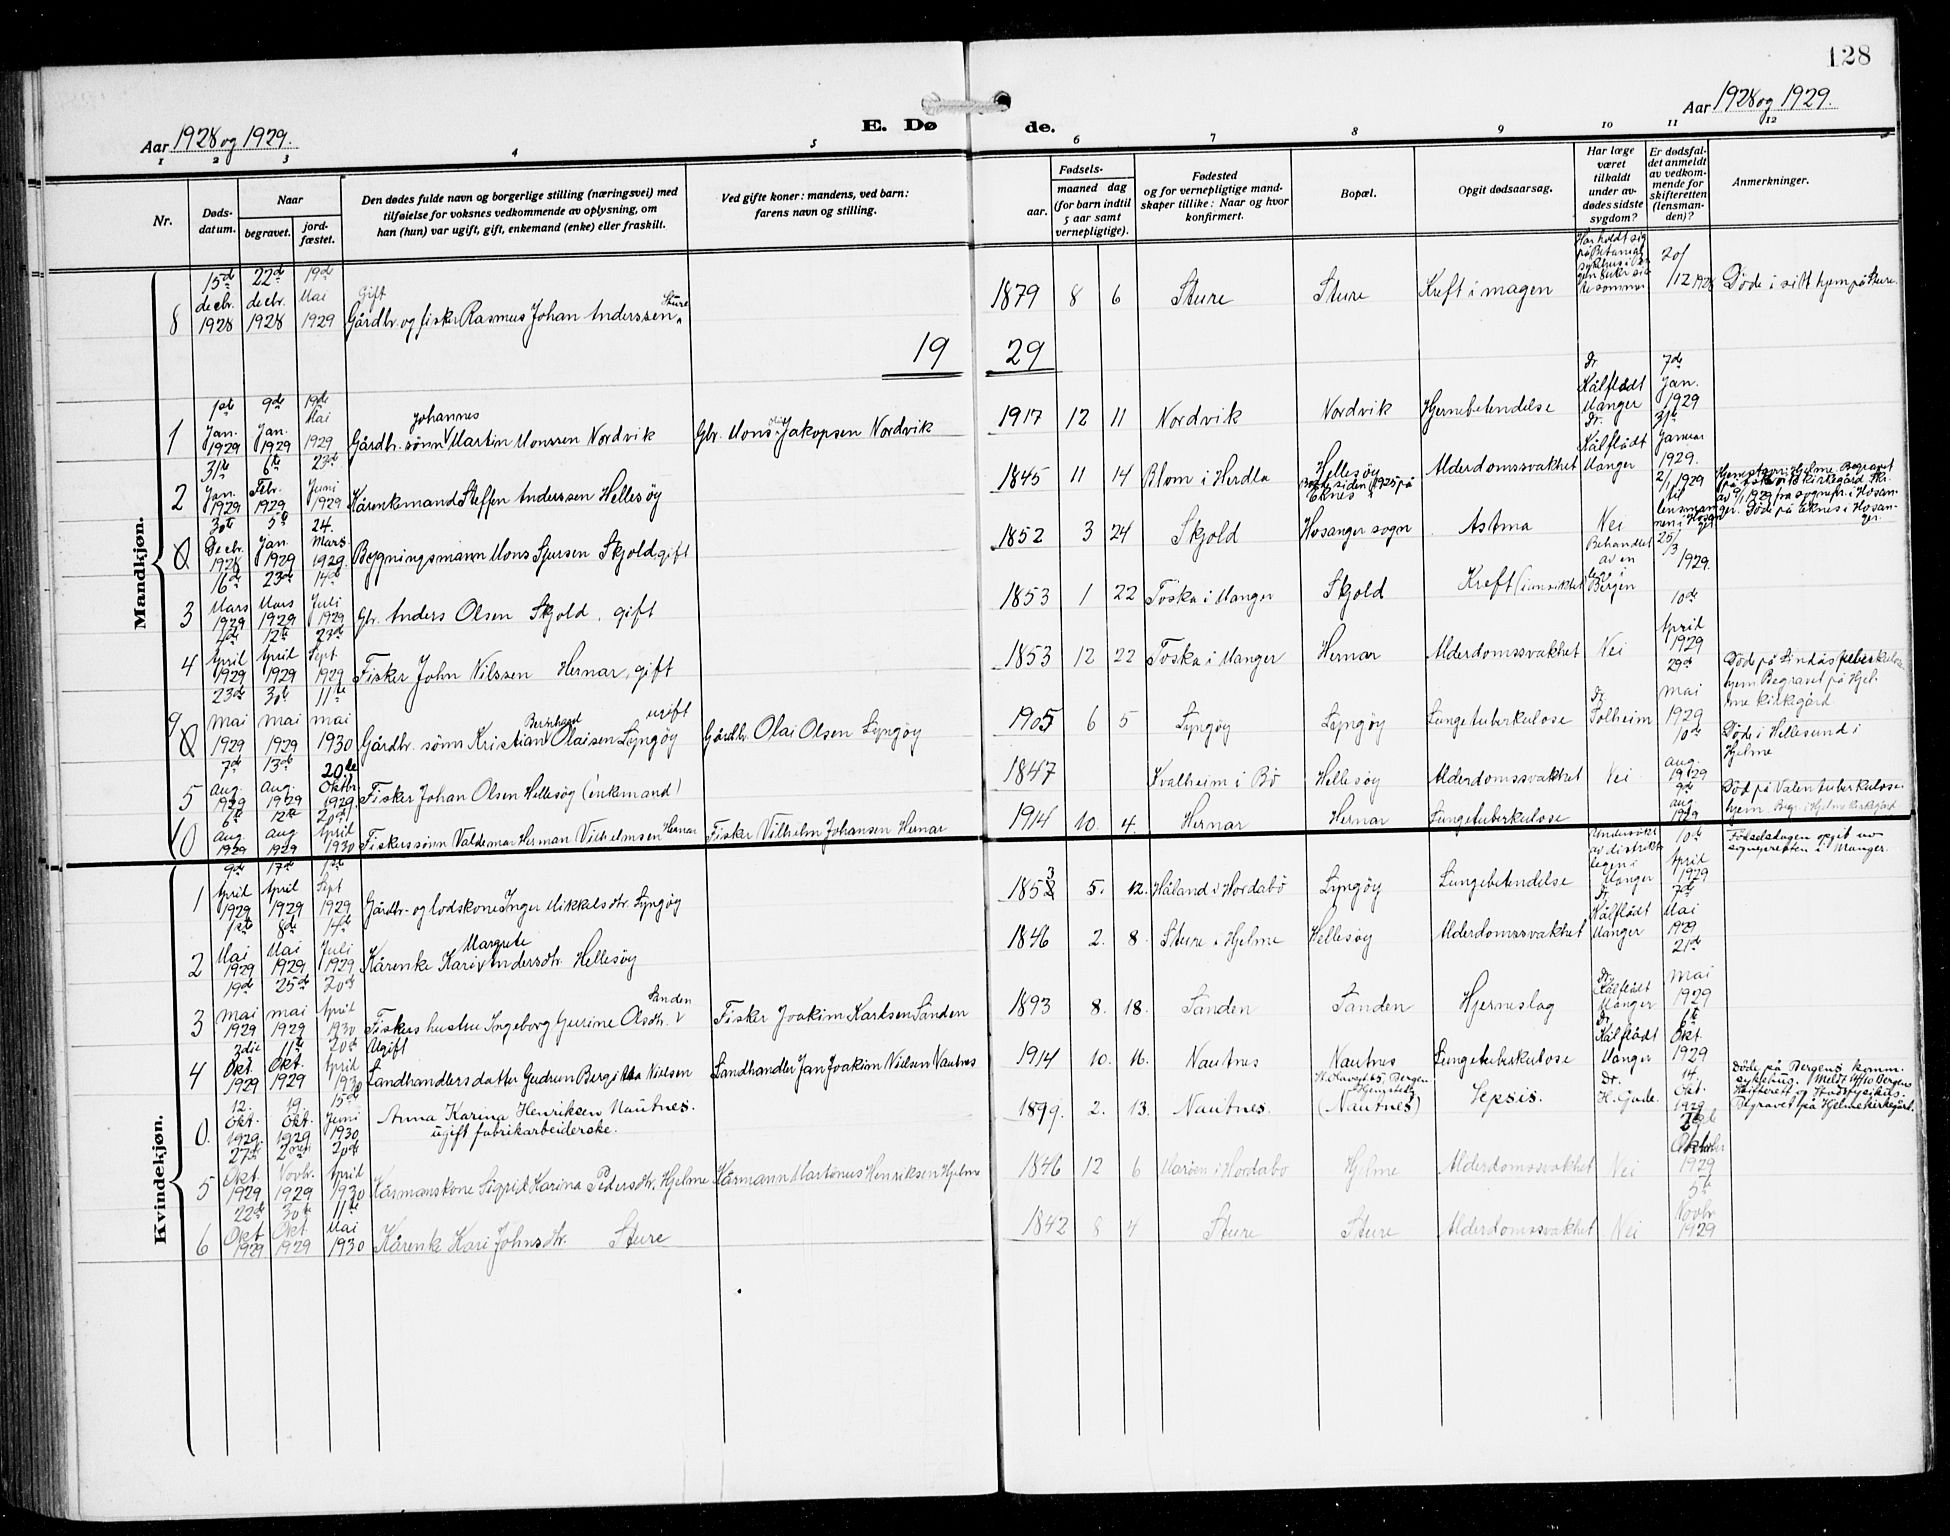 128
Aar 1928 og 1929.
E. Dø de.
Aar 1928 og 1929.
1 2 3 4 5 6 7 8 9 10 11 12
Nr.
Døds-
datum.
Naar
begravet.
jord-
fæstet.
Den dødes fulde navn og borgerlige stilling (næringsvei) med
tilføielse for voksnes vedkommende av oplysning, om
han (hun) var ugift, gift, enkemand (enke) eller fraskilt.
Ved gifte koner: mandens, ved barn:
farens navn og stilling.
Fødsels-
aar.
maaned dag
(for barn indtil
5 aar samt
vernepligtige).
Fødested
og for vernepligtige mand-
skaper tillike: Naar og hvor
konfirmert.
Bopæl.
Opgit dødsaarsag.
Har læge
været
tilkaldt
under av-
dødes sidste
sygdom?
Er dødsfal-
det anmeldt
av vedkom-
mende for
skifteretten
(lensman-
den)?
Anmerkninger.
Mandkjøn.
8 15de decbr. 1928 22de decbr. 1928 19de Mai 1929 Gift Gårdbr. og fisker Rasmus Johan Anderssen Sture 1879 8 6 Sture Sture Kreft i magen 20/12 1928 Døde i sitt hjem på Sture.
1929
1 1ste Jan. 1929 9de Jan. 1929 19de Mai 1929 Gårdbr. sønn Johannes Martin Monssen Nordvik Gbr. Mons Jakopsen Nordvik 1917 12 11 Nordvik Nordvik Hjernebetendelse Dr. Kålflødt Manger 7de Jan. 1929
2 31te Jan. 1929 6te Febr. 1929 23de Juni 1929 Kårenkemand Steffen Anderssen Hellesøy 1845 11 14 Blom i Herdla Hellesøy Alderdomssvakhet Dr. Kålflødt Manger 31te Januar 1929.
0 30te Decbr. 1928 5te Jan. 1929 24. Mars 1929. Bygningsmann Mons Sjursen Skjold, gift 1852 3 24 Skjold Hosanger sogn Astma Nei 2/1 1929 til lensmannen i Hosanger. Døde på Eknes i Hosanger.
3 16de Mars 1929 23de Mars 1929 14de Juli 1929 Gbr. Anders Olsen Skjold, gift 1853 1 22 Toska i Manger Skjold Kreft Behandlet av en lege i Bergen 25/3 1929.
4 4de April 1929 12te April 1929 23de Sept. 1929 Fisker John Nilssen Hernar, gift 1853 12 22 Toska i Manger Hernar Alderdomssvakhet Nei 10de April 1929
9 23de mai 1929 30te mai 1929 11te mai 1930 Gårdbr. sønn Kristian Bernhard Olaisen Lyngøy ugift Gårdbr. Olai Olsen Lyngøy 1905 6 5 Lyngøy Lyngøy Lungetuberkulose Dr. Solheim 29de mai 1929 Død på Lindås tuberkulose-
hjem Begravet på Hjel-
me kirkegård
5 7de aug. 1929 13de aug. 1929 20de Oktbr. 1929. Fisker Johan Olsen Hellesøy (enkemand) 1847 Kvalheim i Bø Hellesøy Alderdomssvakhet Nei 10de aug. 1929 Døde i Hellesund i
Hjelme
10 6te aug. 1929 12te aug 1929 20de April 1930 Fiskerssønn Valdemar Herman Vilhelmsen Hernar Fisker Vilhelm Johansen Hernar 1914 10. 4. Hernar Hernar Lungetuberkulose 9de aug. 1929 Død på Valen tuberkulose-
hjem Begr. i Hjelme kirkegård
Kvindekjøn.
1 9de April 1929 17de April 1929 1ste Sept 1929 Gårdbr.- og lodskone Inger Mikkelsdtr. Lyngøy 1853 5. 12. Håland i Hordabø Lyngøy Lungebetendelse Undersøkt av distriktlegen i Manger 10de April 1929 Fødselsdagen opgit av
sognepresten i Manger.
2 1ste Mai 1929 8de Mai 1929 14de Juli 1929 Kårenke Kari Margrete Andersdtr. Hellesøy 1846 2. 8. Sture i Hjelme Hellesøy Alderdomssvakhet Dr. Kålflødt Manger 7de Mai 1929
3 19de mai 1929 25de mai 1929 20de April 1930 Fiskers hustru Ingeborg Gurine Olsdtr. Sanden Fisker Joakim Karlsen Sanden 1893 8. 18. Sanden Sanden Hjerneslag Dr. Kålflødt Manger 21de mai 1929
4 3die Okt. 1929 11te Okt. 1929 20de April 1930 Ugift Landhandlersdatter Gudrun Bergitta Nielsen Landhandler Jan Joakim Nielsen Nautnes 1914 10. 16. Nautnes Nautnes Lungetuberkulose Dr. Kålflødt Manger 8te Okt 1929
0. 12. Okt. 1929. 19. Okt. 1929 15de Juni 1930 Anna Karina Henriksen Nautnes.
ugift fabrikarbeiderske. 1899. 2. 13. Nautnes. (Nautnes) Sepsis. Dr. H. Gade. 14 Okt. 1929 Døde på Bergens komm.
sykehus. Meldt 14/10 Bergens
Skifterett og Stadsfysikus.
Begravet på Hjelme kirkegård.
5 27de Okt 1929 2nen Novbr. 1929 20de April 1930 Kårmanskone Sigrid Karina Pedersdtr. Hjelme Kårmann Martinus Henriksen Hjelme 1846 12 6 Marøen i Hordabø Hjelme Alderdomssvakhet Nei Oktober 1929
6 22de Okt. 1929 30te Okt. 1929 11te Mai 1930 Kårenke Kari Johnsdtr. Sture 1842 8 4 Sture Sture Alderdomssvakhet Nei 5te Novbr. 1929